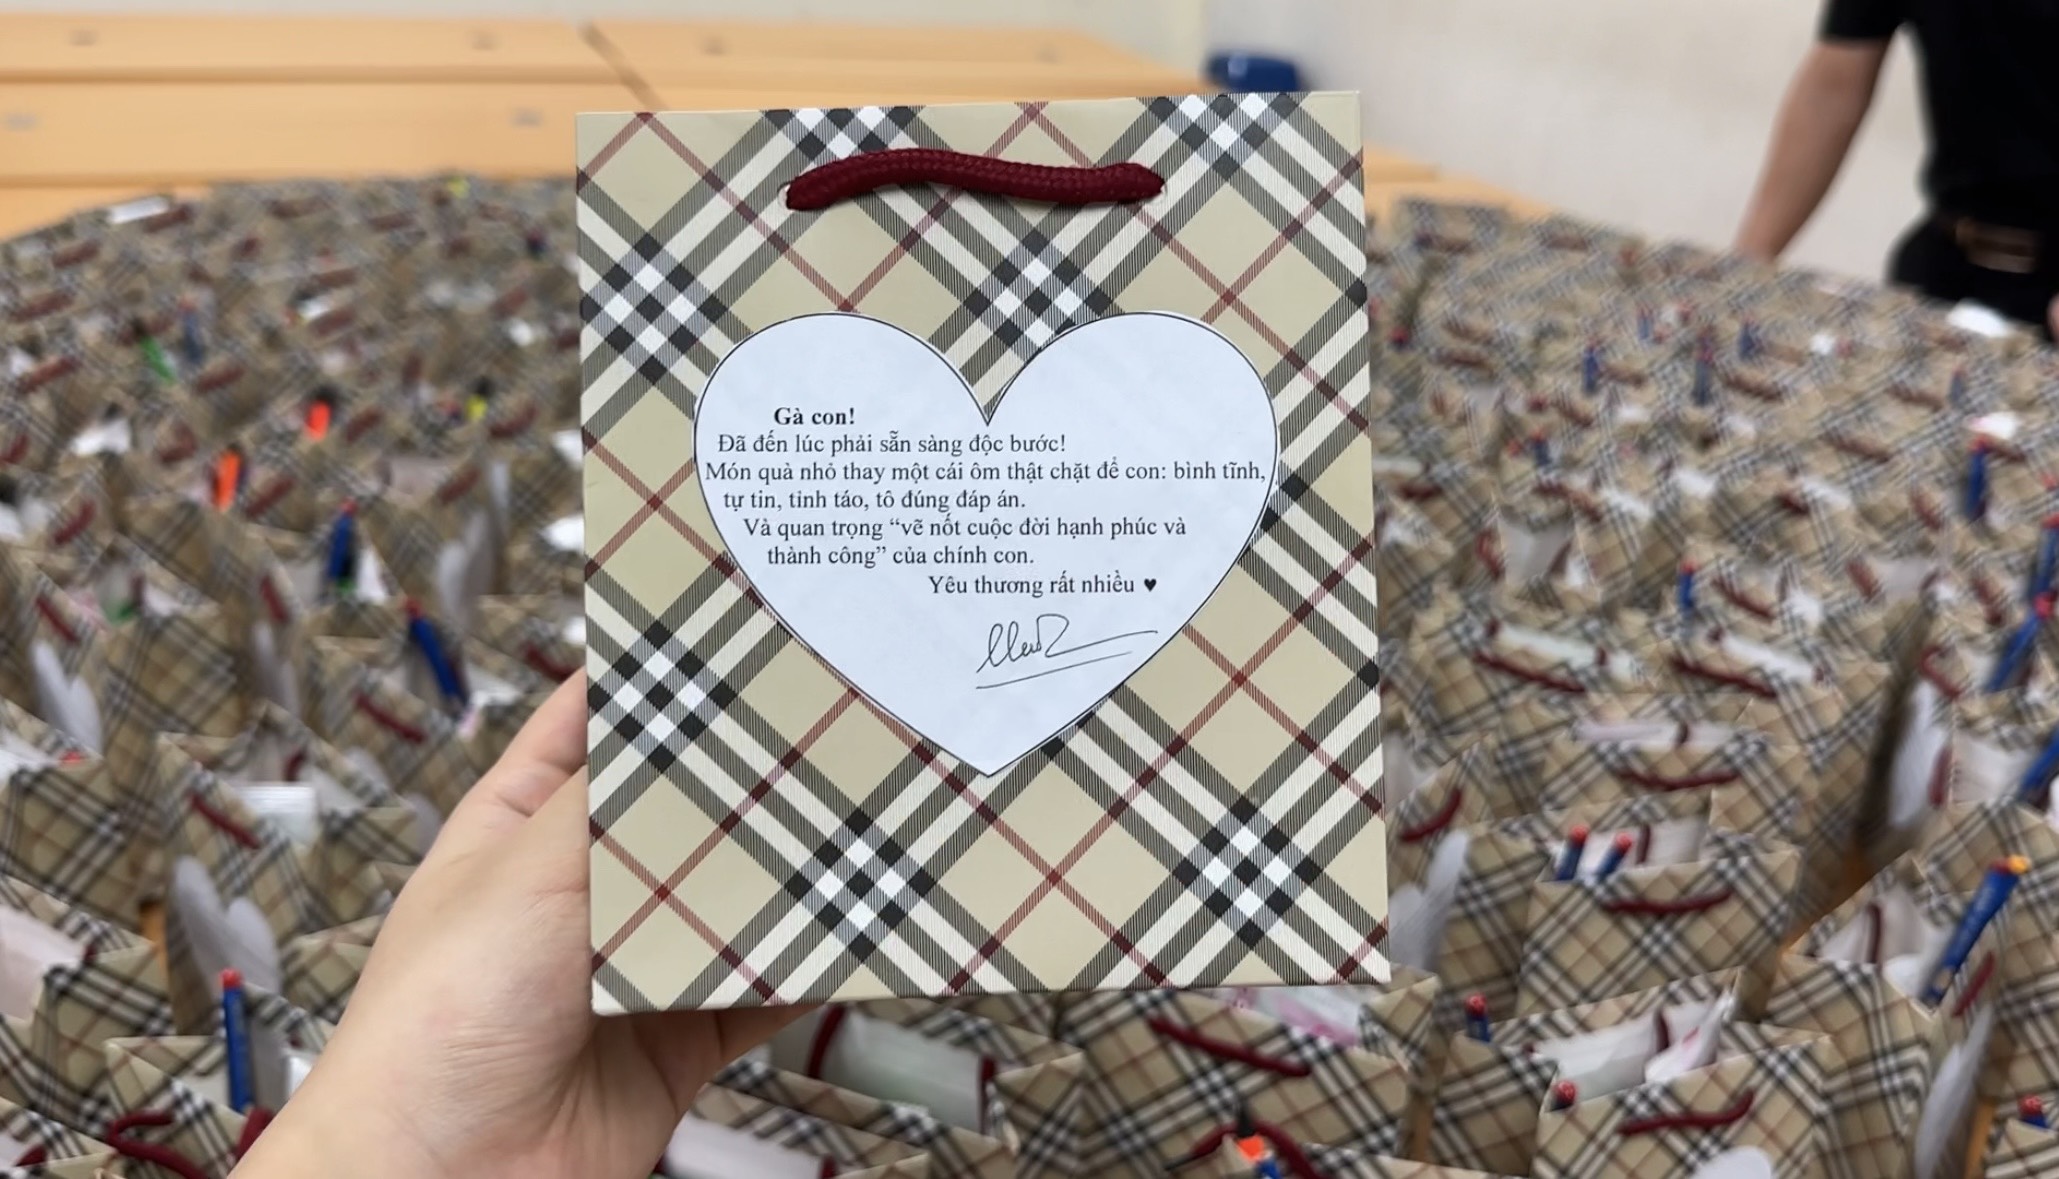 Gà con!
Đã đến lúc phải sẵn sàng độc bước!
Món quà nhỏ thay một cái ôm thật chặt để con: bình tĩnh,
tự tin, tỉnh táo, tô đúng đáp án.
Và quan trọng “vẽ nốt cuộc đời hạnh phúc và
thành công” của chính con.
Yêu thương rất nhiều ♥